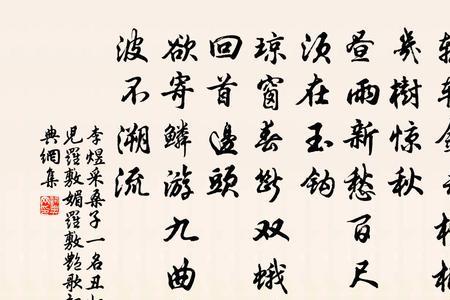 幾樹惊秋
昼雨新愁百尺
须在玉钩
琼窗春断双蛾
回首邊頭
欲寄鳞游九曲
波不溯流
李煜采桑子一名丑
兒羅敷媚羅敷艷歌
典網集